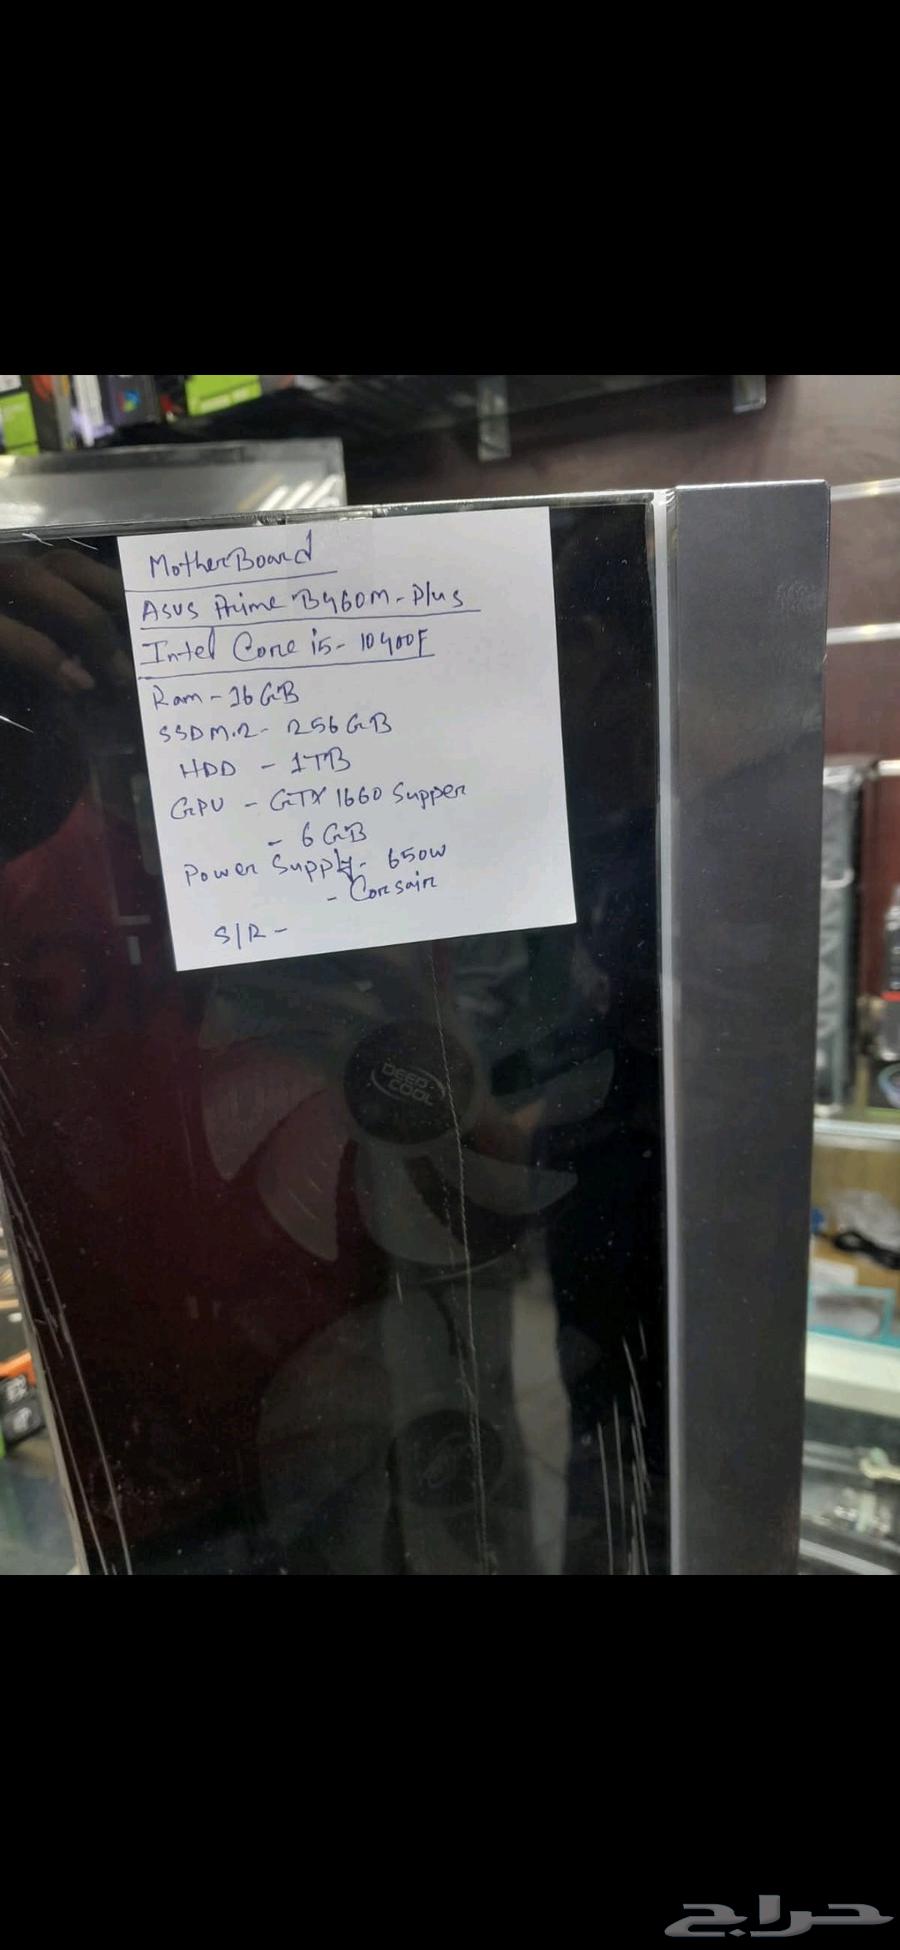 MotherBoard
Asus Prime B460M-Plus
Intel Core i5-10400F
Ram - 16 GB
SSD M.2 - 256 GB
HDD - 1TB
GPU - GTX 1660 Supper
- 6 GB
Power Supply - 650W
- Corsair
S/R -
DEEP
COOL
حراج